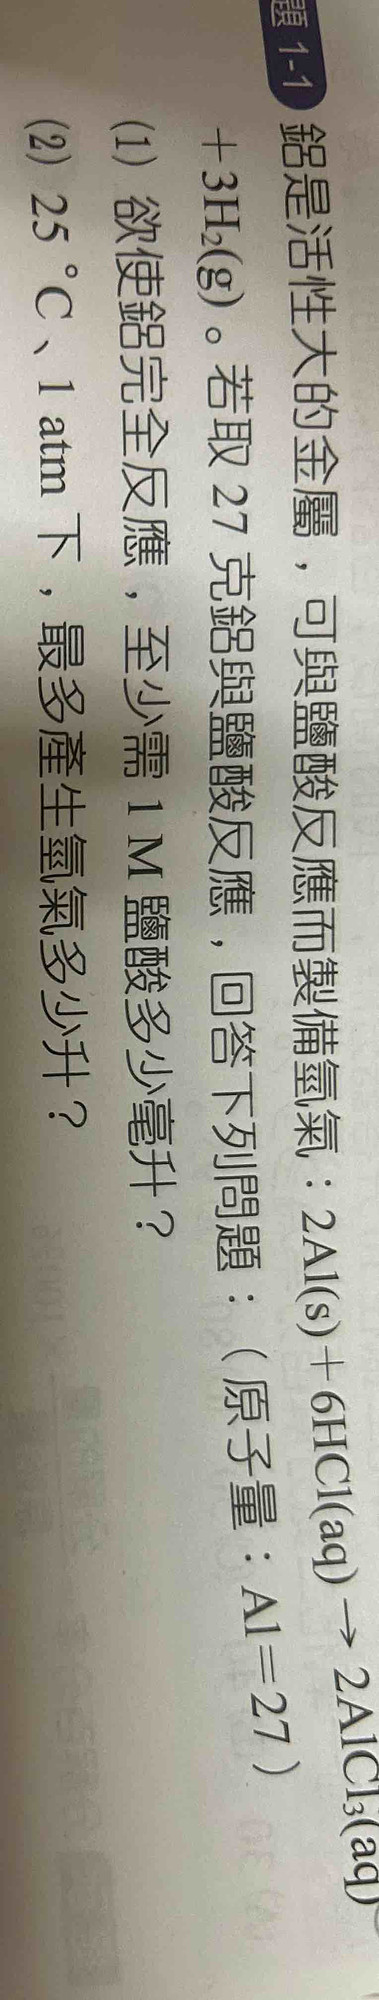 題 1-1 鋁是活性大的金屬，可與鹽酸反應而製備氫氣：2Al(s)＋6HCl(aq) → 2AlCl₃(aq)
＋3H₂(g)。若取 27 克鋁與鹽酸反應，回答下列問題：（原子量：Al＝27）
(1) 欲使鋁完全反應，至少需 1 M 鹽酸多少毫升？
(2) 25 °C、1 atm 下，最多產生氫氣多少升？